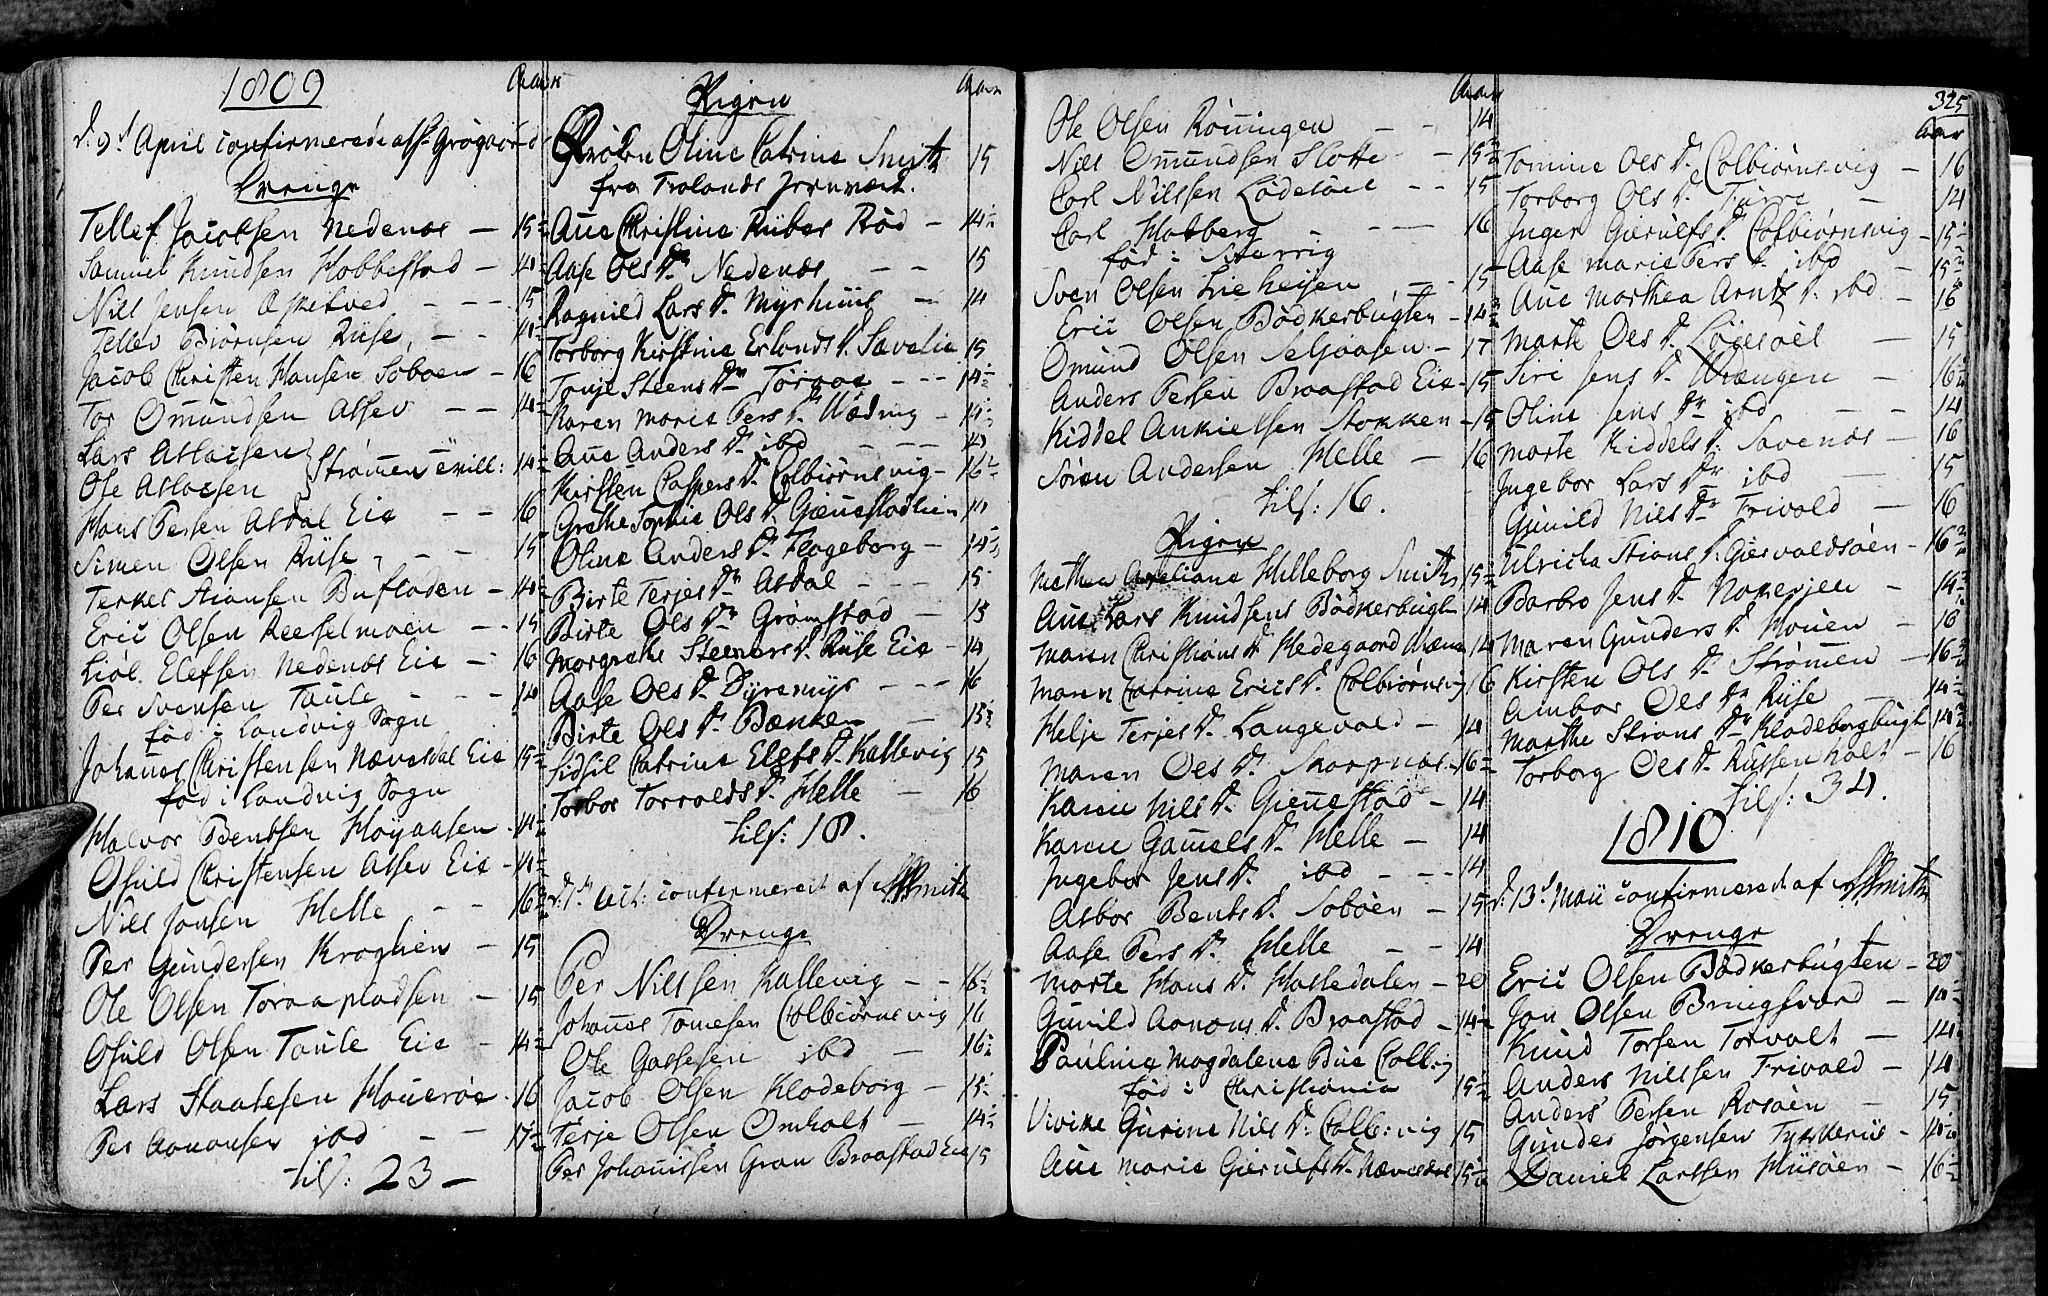 1809
Aar
d: 9d April confirmerede af Hr Grøgaard
Drenge
Tellef Jacobsen Nedenæs — 15
Samuel Knudsen Hobbestad — 14
Nils Jensen Asketved — 15
Tellev Biørnsen Riise — 14
Jacob Christen Hansen Søboen — 16
Tor Omundsen Assev — 14
Lars Atlaksen } Strømmen
Ole Atlaksen
Hans Persen Asdal Eie — 16
Simen Olsen Riise — 15
Terkel Stiansen Bufladen — 14
Eric Olsen Reeselmoen — 15
Liøl Elefsen Nedenæs Eie — 16
Per Svensen Taule — 14
fød i Landvig Sogn
Johanes Christensen Nævesdal Eie 15
fød i Landvig Sogn
Halvor Bentsen Høyaasen — 14
Osuld Christensen Assev Eie — 14
Nils Jensen Helle — 16
Per Gundersen Kroghen — 15
Ole Olsen Toraapladsen — 15
Osuld Olsen Taule Eie — 14
Lars Staalesen Hauerøe — 16
Per Aanonsen ibd — 17
tils: 23 —
Pigen
Aar
Frøken Oline Catrine Smith 15
fra Frolands Jernværk.
Ane Christine Rød — 14
Aase Ols Dr Nedenæs — 15
Ragnild Lars D. Myrhuus — 14
Torborg Kirstine Erlands D. Savelie 15
Tonje Steens Dr — 14
Karen Marie Pers Dr — 14
Ane Anders Dr ibd
Kirsten Caspers Dr Colbiørnsvig — 16
Grethe Sophie Ols D. Gieustadlien 14
Oline Anders Dr Flageborg — 14
Birte Terjes Dr Asdal — 15
Birte Ols Dr Grømstad — 15
Margrethe Steenars D. Riise Eie — 14
Aase Ols D. Dyremyr — 16
Birte Ols Dr Bænken — 15
Sidsil Catrine Elefs D. Kallevig 15
Torbor Torvalds D. Helle — 16
tils: 18.
d: 1te Oct: confirmeret af Smith
Drenge
Per Nilssen Kallevig — 16
Johanes Tomesen Colbiørnsvig 16
Ole Gassesen ibd — 16
Jacob Olsen Klodeborg — 15
Terje Olsen Omholt — 14
Per Johanissen Gran Braastad Eie 15
Aar
Ole Olsen Rønningen — 14
Nils Omundsen Slotte — 15
Carl Nilssen Lødesøel — 15
Carl Hatberg — 16
fød i
Sven Olsen Lieheien — 15
Eric Olsen Bødkerbugten — 14
Omund Olsen Selaasen — 17
Anders Persen Braastad Eie — 15
Kiddel Ankielsen Stokken — 15
Sören Andersen Helle — 16
tils: 16.
Pigen
Mathea Aureliana Helleborg Smith 15
Ane Lars Knudsens Bødkerbugt 14
Maren Christians D. Hedegaard 14
Maren Catrine Erics D. Colbiørnsvig 16
Helje Terjes D. Langevold — 14
Maren Ols D. Skarpnæs — 16
Karen Nils D. Gieustad — 14
Karen Gamels D. Helle — 14
Ingebor Jens D. ibd — 14
Asbor Bents D. Søboen — 15
Aase Pers D. Helle — 14
Marte Hans D. Hassedalen — 20
Gunild Aanons D. Braastad — 14
Pauline Magdalene Bue Colb:vig
fød i Christiania 15
Vivike Gurine Nils D. Colb:vig 15
Ane Marie Gierulfs D. Nævesdal 15
325
Aar
Tomine Ols D. Colbiørnsvig — 16
Torborg Ols D. — 14
Inger Gierulfs D. Colbiørnsvig — 15
Aase Marie Pers D. ibd — 15
Ane Marthea Arnts D. ibd — 16
Marte Ols D. Lødesøel — 15
Siri Jens D. Vrængen — 16
Oline Jens Dr ibd — 14
Marte Kiddels D. Savenæs — 16
Ingebor Lars Dr ibd — 15
Gunild Nils Dr Frivold — 16
Ulricka Stians D. Giervoldsøen — 16
Barbro Jens D. — 14
Maren Gunders D. Houen — 16
Kirsten Ols D. Strømmen — 16
Ambor Ols Dr Riise — 14
Marthe Stians Dr Klodeborgbugt 14
Torborg Ols D. Russenholt — 16
tils: 34.
1810
d: 13d Maii confirmerede af Smith
Drenge
Eric Olsen Bødkerbugten — 20
Jon Olsen Bringsvord — 14
Knud Torsen Torvalt — 14
Anders Nilssen Frivold — 14
Anders Persen Rosøen — 15
Gunder Jørgensen — 14
Daniel Larssen Huusøen — 16